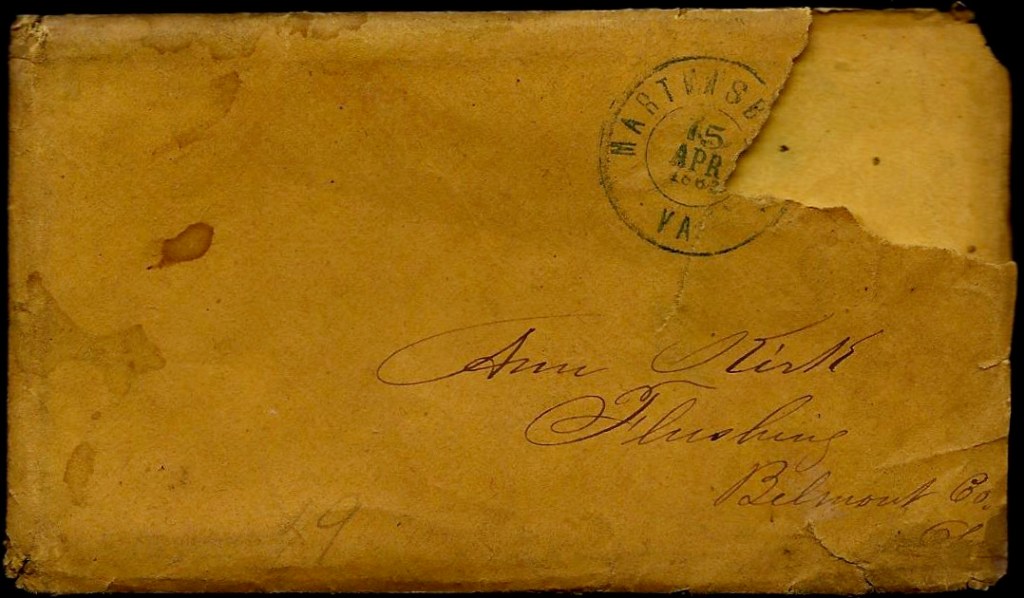 MARTINSB
15
APR
186
VA.
Ann Kirk
Flushing
Belmont Co.